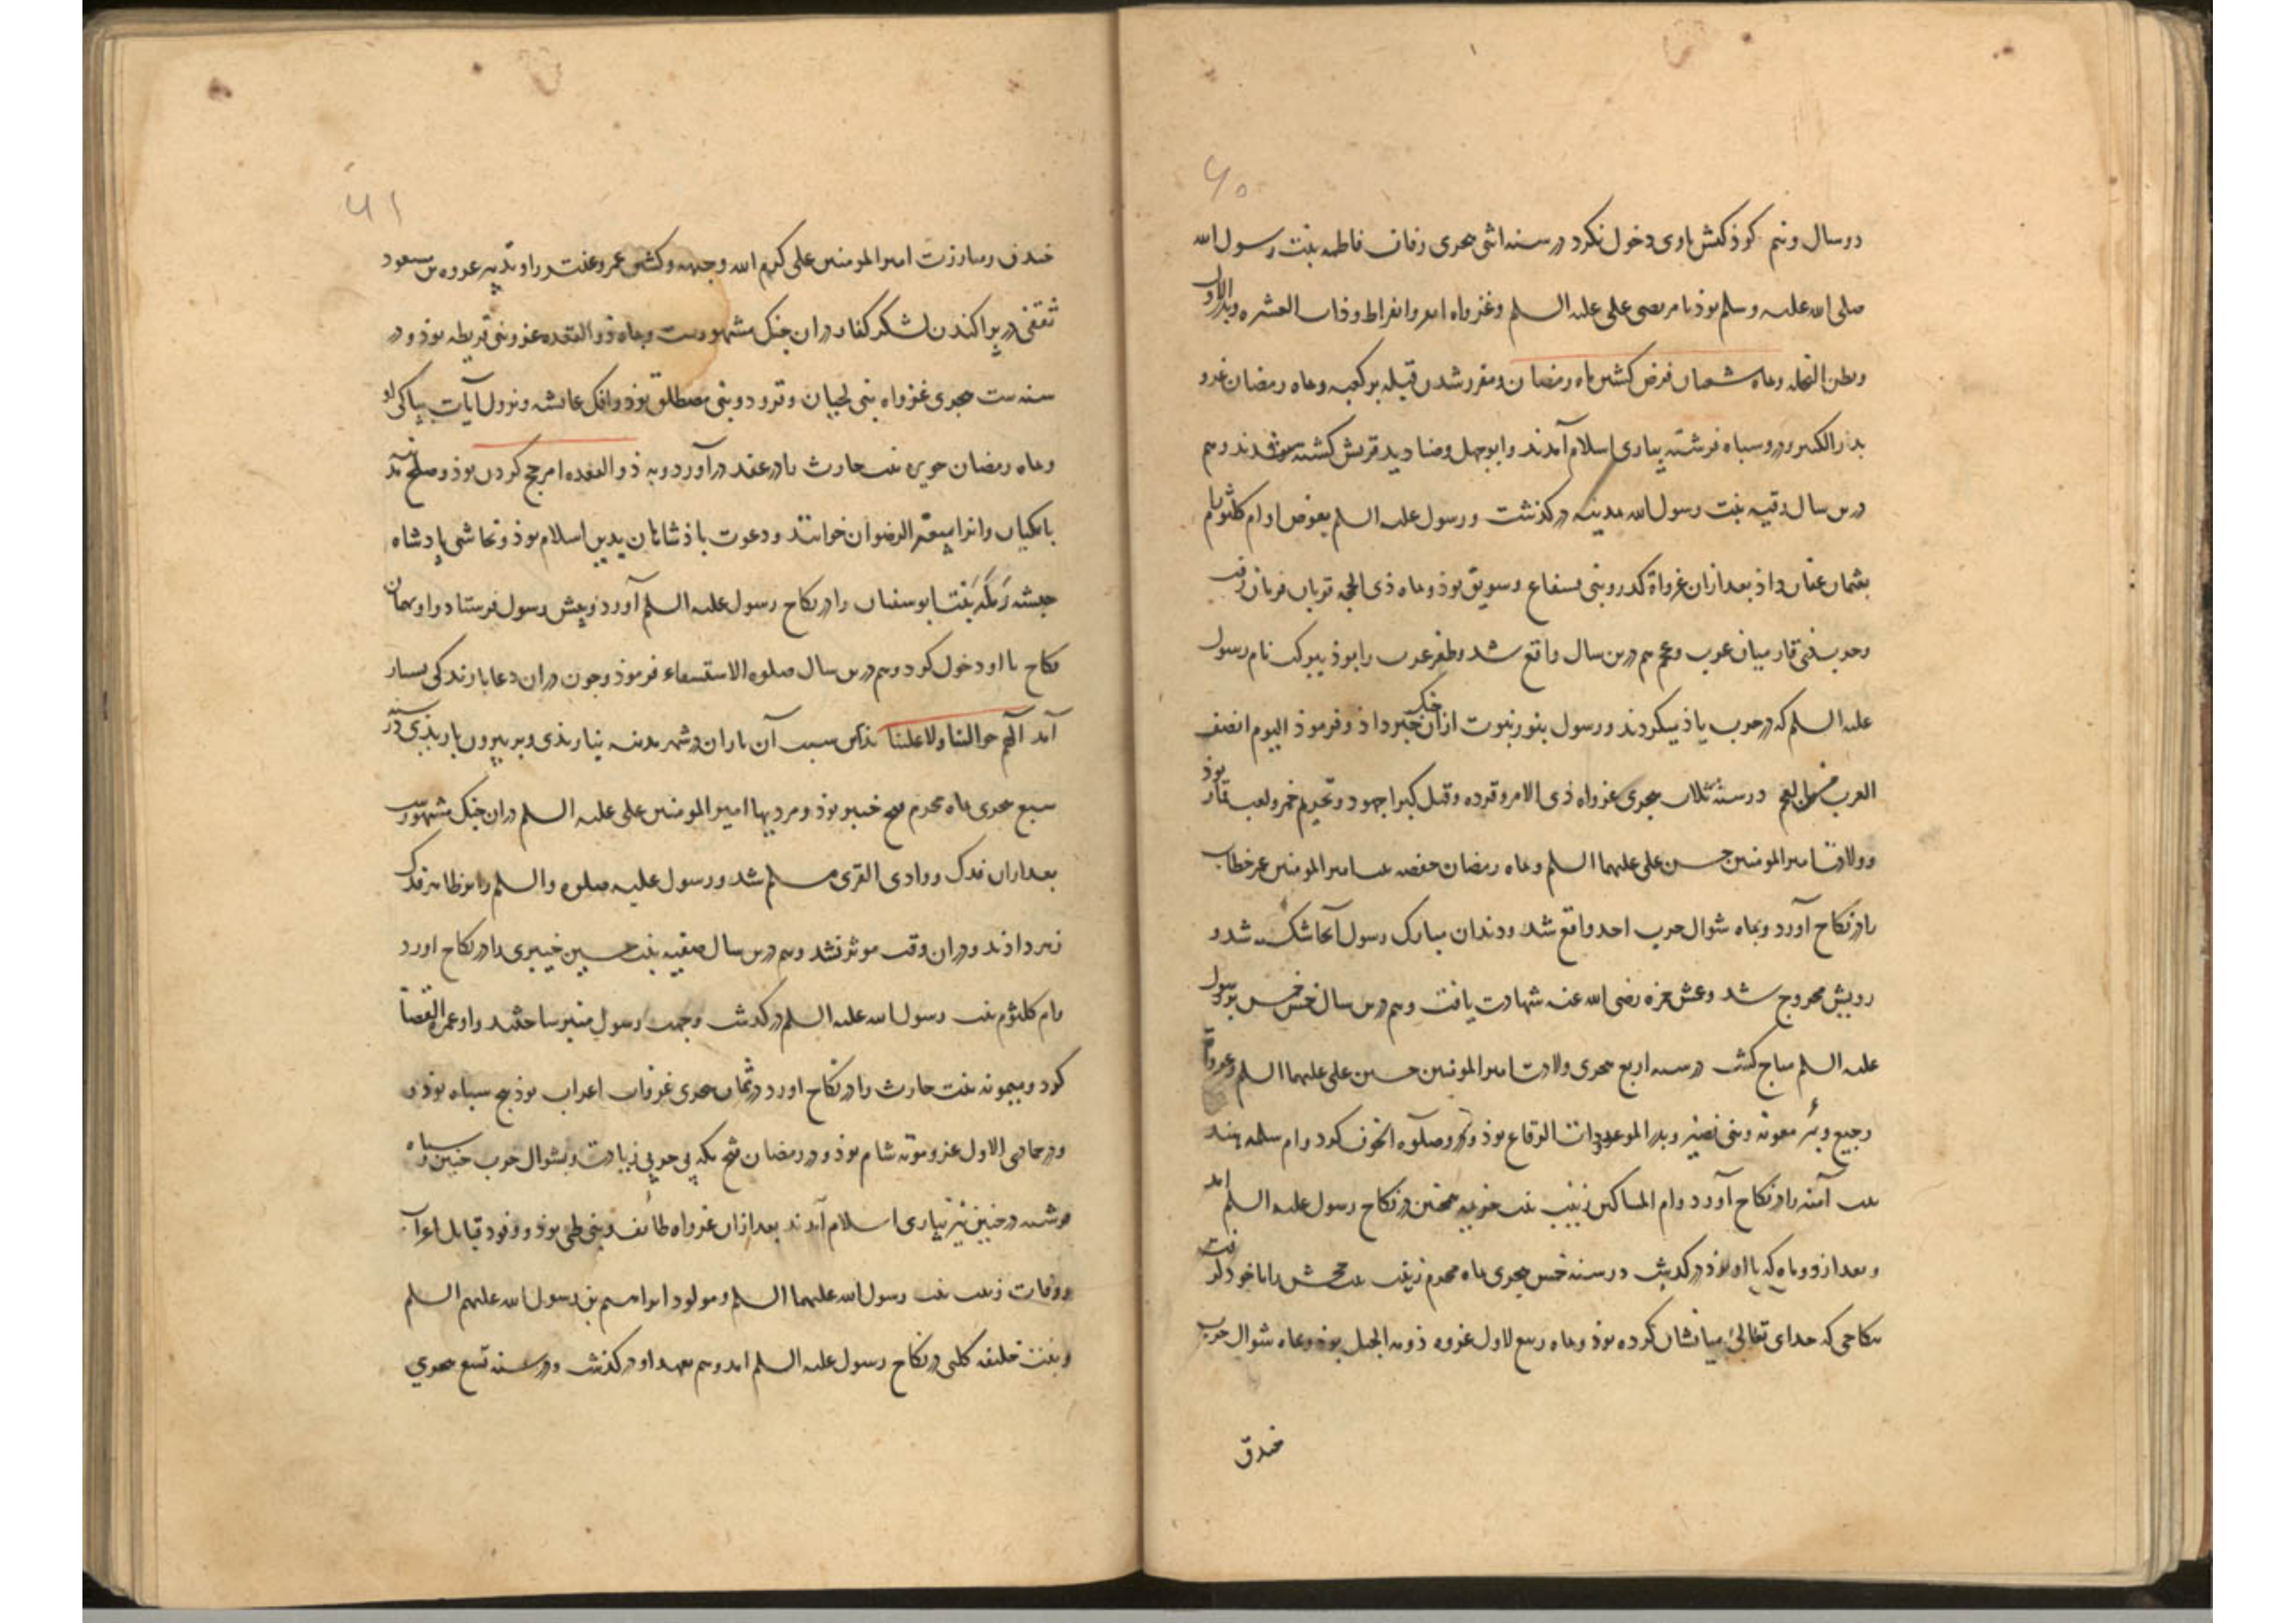 ۶۰
در سال و نیم کوذکیش باوی دخول نکرد در سنه اثنی هجری زفاف فاطمه بنت رسول الله
صلی الله علیه وسلم بوذ با مرتضی علی علیه السلم وغزواه ابوا وانفراط وذات العشیره وبدر الاول
وبطن النخله وماه شعبان فرض کشتن ماه رمضان ومقرر شدن قبیله بر کعبه وماه رمضان غزو
بدر الکبری ودرو سباه فرشته بیاری اسلام آمدند وابوجهل وصنادید قریش کشته شدند وهم
درین سال رقیه بنت رسول الله بمدینه درکذشت ورسول علیه السلم بعوض او ام کلثوم
بعثمان عفان داذ بعد ازان غزواة کدر وبنی وسویق بوذ وماه ذی الحجه قربان فرمان رفت
وحرب ذی قار میان عرب وعجم هم درین سال واقع شد وظفر عرب را بوذ ببرکت نام رسول
علیه السلم که در حرب یاذ میکردند ورسول بنور نبوت ازان جنک خبر داذ وفرموذ الیوم انصف
العرب من العجم در سنه ثلاث هجری غزواه ذی الامر وقرده وقتل کبرا جهود وتحریم خمر ولعب قمار بوذ
وولادت امیر المومنین حسن علی علیهما السلم وماه رمضان حفصه بنت امیر المومنین عمر خطاب
را در نکاح آورد وبماه شوال حرب احد واقع شد ودندان مبارک رسول آنجا شکسته شد و
رویش مجروح شد وعمش حمزه رضی الله عنه شهادت یافت وهم درین سال خمس بر رسول
علیه السلم مباح کشت در سنه اربع هجری ولادت امیر المومنین حسین علی علیهما السلم وغزواة
رجیع وبئر معونه وبنی نضیر وبدر الموعد وذات الرقاع بوذ ودرو صلوه الخوف کرد وام سلمه هند
بنت آمنه را در نکاح آورد وام المساکین زینب بنت خزیمه همچنین در نکاح رسول علیه السلم امد
وبعد از دو ماه که با او بوذ درکذشت در سنه خمس هجری ماه محرم زینب بنت جحش را با خود کرفت
بنکاحی که خدای تعالی میانشان کرده بوذ وماه ربیع الاول غزوه دومة الجندل بوذ وماه شوال حرب
خندق
۶۱
خندق ومبارزت امیر المومنین علی کرم الله وجهه وکشتن عمرو عنتر را وتدبیر عروه بن مسعود
ثقفی در پراکندن لشکر کفار دران جنک مشهورست وبماه ذو القعده غزو بنی قریظه بوذ ودر
سنه ست هجری غزواه بنی لحیان وقرود وبنی مصطلق بوذ وافک عائشه ونزول آیات بپاکی او
وماه رمضان جویره بنت حارث را در عقد درآورد وبه ذو القعده امر حج کردن بوذ وصلح آمد
با مکیان وانرا بیعة الرضوان خوانند ودعوت باذشاهان بدین اسلام بوذ ونجاشی پادشاه
حبشه رمله بنت ابو سفیان را در نکاح رسول علیه السلم آورد وپیش رسول فرستاد واو بهمان
نکاح با او دخول کرد وهم درین سال صلوه الاستسقاء فرموذ وچون دران دعا بارندکی بسیار
آمد اللهم حوالینا ولا علینا بذین سبب آن باران در شهر مدینه نباریدی وبر بیرون باریذی در سنه
سبع هجری ماه محرم فتح خیبر بوذ ومردیها امیر المومنین علی علیه السلم دران جنک مشهورست
بعد ازان فدک ووادی القری مسلم شد ورسول علیه صلوه والسلم را
زهر داذند ودران وقت موثر نشد وهم درین سال صفیه بنت خیبری را در نکاح اورد
وام کلثوم بنت رسول الله علیه السلم درکذشت وجهت رسول منبر ساختند واو عمرة القضا
کرد ومیمونه بنت حارث را در نکاح اورد در ثمان هجری غزوات اعراب بوذ سباه بوذ و
ودر جمادی الاول غزو موته شام بوذ ودر رمضان فتح مکه وبشوال حرب حنین وسباه
فرشته در حنین نیز بیاری اسلام آمدند بعد ازان غزواه طائف وبنی طی بوذ ووفود قبایل اعراب
ووفات زینب بنت رسول الله علیهما السلم ومولود ابراهیم بن رسول الله علیهم السلم
وبنت خلیفه کلبی در نکاح رسول علیه السلم امد وهم بعهد او درکذشت ودر سنه تسع هجری